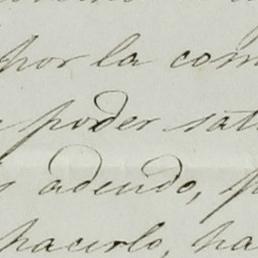 por la com
poder sati
adeudo, p
hacerlo, ha